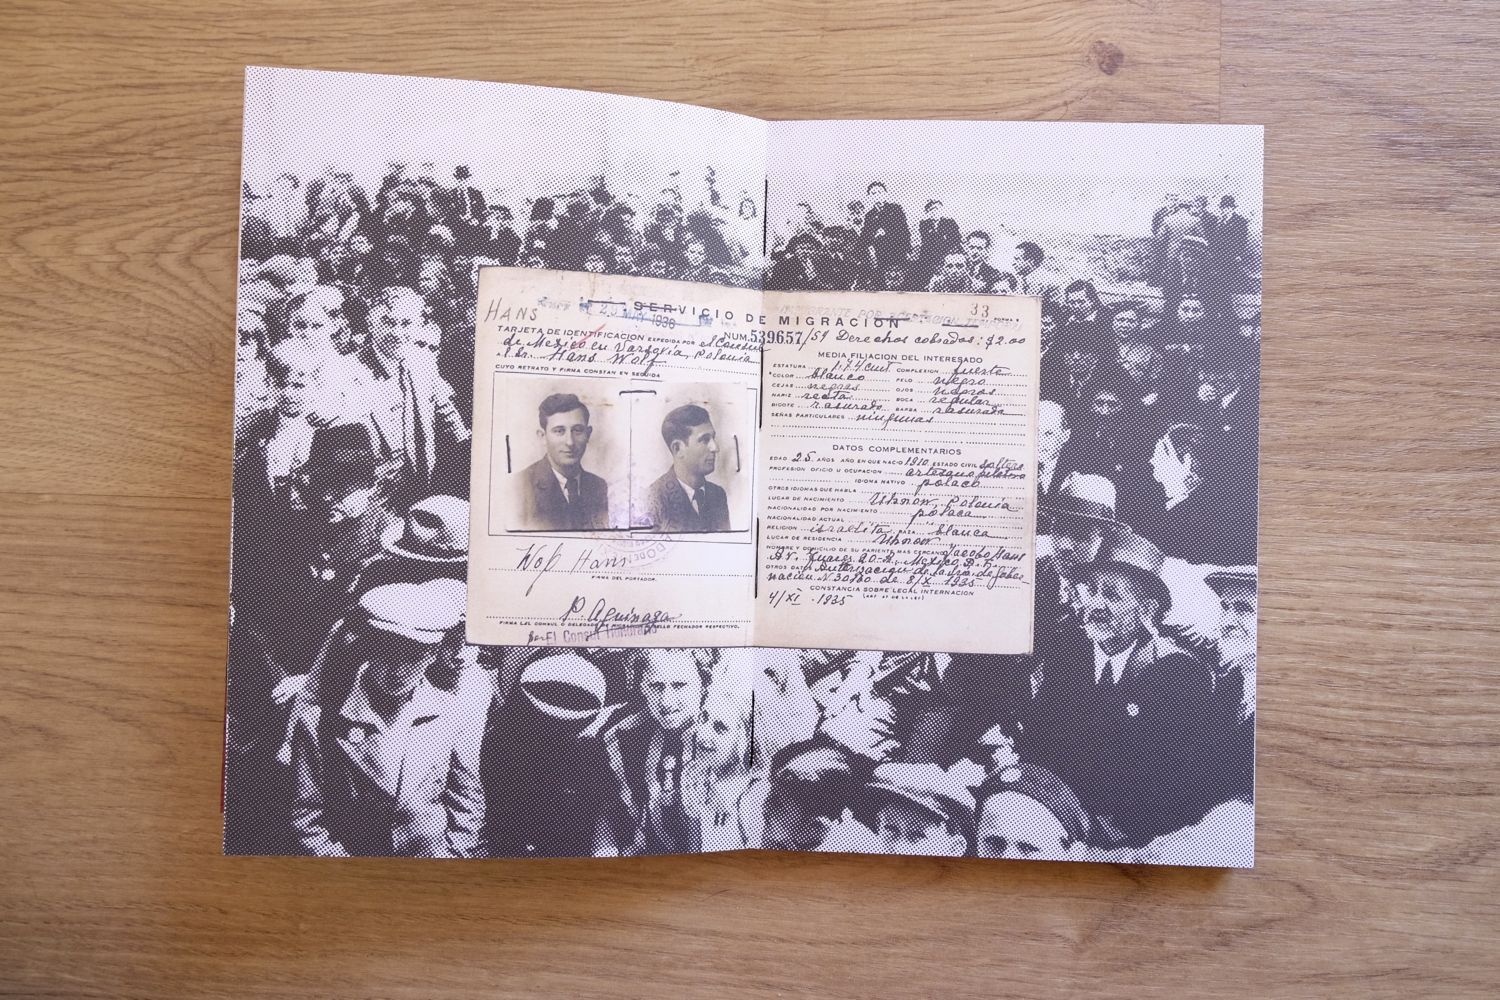 HANS
20 MAY 1936
SERVICIO DE MIGRACION
33
TARJETA DE IDENTIFICACION EXPEDIDA POR el Consul
NUM. 539657/59 Derechos cobrados: $2.00
de Mexico en Varsovia, Polonia
al Sr. Hans Wolf
CUYO RETRATO Y FIRMA CONSTAN EN SEGUIDA
Wolf Hans
FIRMA DEL PORTADOR.
P. Aguinaga
FIRMA DEL CONSUL O DELEGADO DE MIGRACION Y SELLO FECHADOR RESPECTIVO.
por El Consul Honorario
MEDIA FILIACION DEL INTERESADO
ESTATURA 1.74 cmt. COMPLEXION fuerte
COLOR blanco PELO negro
CEJAS negras OJOS negros
NARIZ recta BOCA regular
BIGOTE rasurado BARBA rasurada
SEÑAS PARTICULARES ningunas
DATOS COMPLEMENTARIOS
EDAD 25 AÑOS AÑO EN QUE NACIO 1910 ESTADO CIVIL soltero
PROFESION OFICIO U OCUPACION artesano
IDIOMA NATIVO polaco
OTROS IDIOMAS QUE HABLA
LUGAR DE NACIMIENTO Uhnow, Polonia
NACIONALIDAD POR NACIMIENTO polaca
NACIONALIDAD ACTUAL
RELIGION israelita RAZA blanca
LUGAR DE RESIDENCIA Uhnow
NOMBRE Y DOMICILIO DE SU PARIENTE MAS CERCANO Jacobo Hans
Av. Juarez 20-A, Mexico D.F.
OTROS DATOS Autorizacion de la Sria. de Gober-
nación N. 30180 de 8/X 1935
CONSTANCIA SOBRE LEGAL INTERNACION
4/XI 1935 (ART. 47 DE LA LEY)